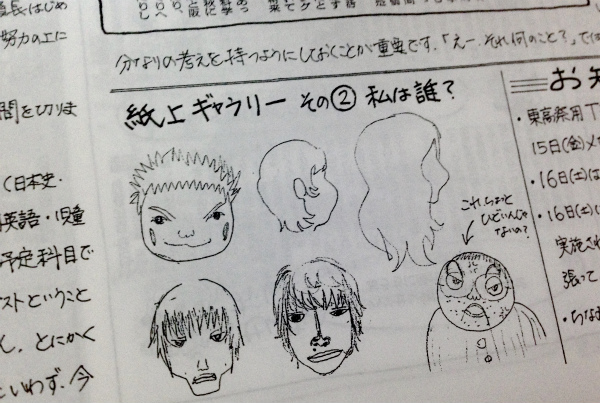 長はじめ
努力の上に
間を切りま
く日本史・
英語・児童
予定科目で
ストということ
し、とにかく
といわず、今
分なりの考えを持つようにしておくことが重要です。「えー、それ何のこと?」では
紙上ギャラリー その② 私は誰?
これ、ちょっと
ひどいんじゃ
ないの?
お知
・東高祭用T
15日(金)メ
・16日(土)は
・16日(土)に
実施され
張って
・ちなみ